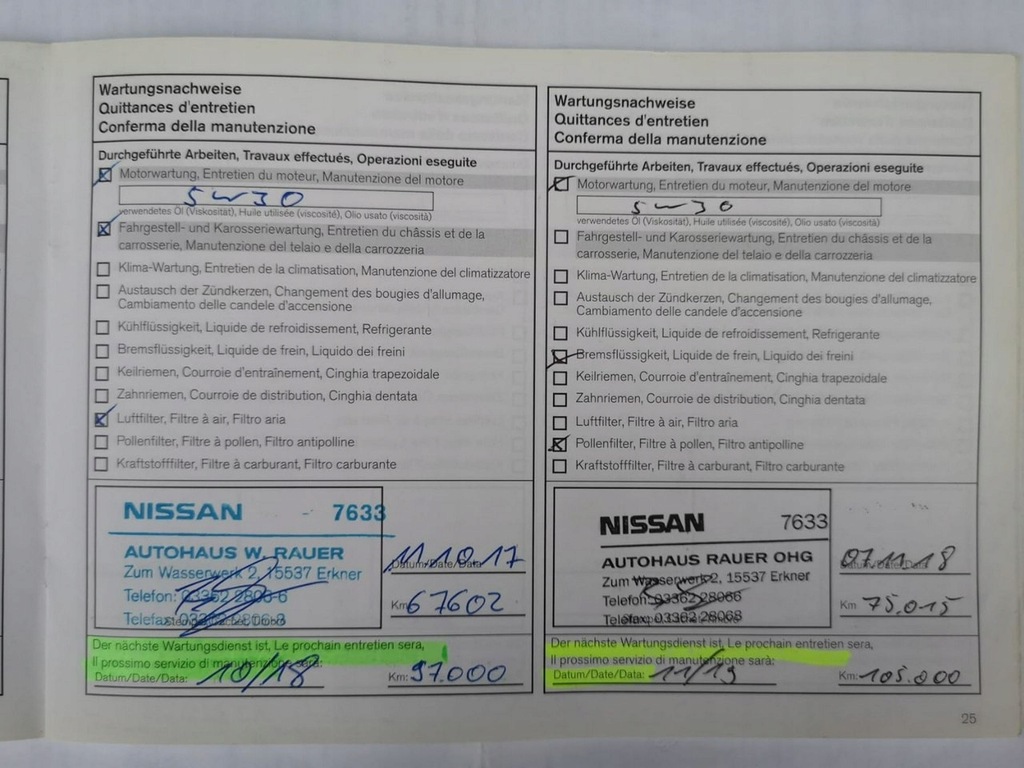 Wartungsnachweise
Quittances d'entretien
Conferma della manutenzione
Durchgeführte Arbeiten, Travaux effectués, Operazioni eseguite
Motorwartung, Entretien du moteur, Manutenzione del motore
5W30
verwendetes Öl (Viskosität), Huile utilisée (viscosité), Olio usato (viscorità)
Fahrgestell- und Karosseriewartung, Entretien du châssis et de la
carrosserie, Manutenzione del telaio e della carrozzeria
Klima-Wartung, Entretien de la climatisation, Manutenzione del climatizzatore
Austausch der Zündkerzen, Changement des bougies d'allumage,
Cambiamento delle candele d'accensione
Kühlflüssigkeit, Liquide de refroidissement, Refrigerante
Bremsflüssigkeit, Liquide de frein, Liquido dei freini
Keilriemen, Courroie d'entraînement, Cinghia trapezoidale
Zahnriemen, Courroie de distribution, Cinghia dentata
Luftfilter, Filtre à air, Filtro aria
Pollenfilter, Filtre à pollen, Filtro antipolline
Kraftstofffilter, Filtre à carburant, Filtro carburante
NISSAN - 7633
AUTOHAUS W. RAUER
Zum Wasserwerk 2, 15537 Erkner
Telefon: 03362 2806-6
Telefax: 03362 2806-8
11.10.17
Datum/Date/Data
Km 67602
Der nächste Wartungsdienst ist, Le prochain entretien sera,
Il prossimo servizio di manutenzione sarà:
Datum/Date/Data: 10/18 Km: 97.000
Wartungsnachweise
Quittances d'entretien
Conferma della manutenzione
Durchgeführte Arbeiten, Travaux effectués, Operazioni eseguite
Motorwartung, Entretien du moteur, Manutenzione del motore
5W30
verwendetes Öl (Viskosität), Huile utilisée (viscosité), Olio usato (viscorità)
Fahrgestell- und Karosseriewartung, Entretien du châssis et de la
carrosserie, Manutenzione del telaio e della carrozzeria
Klima-Wartung, Entretien de la climatisation, Manutenzione del climatizzatore
Austausch der Zündkerzen, Changement des bougies d'allumage,
Cambiamento delle candele d'accensione
Kühlflüssigkeit, Liquide de refroidissement, Refrigerante
Bremsflüssigkeit, Liquide de frein, Liquido dei freini
Keilriemen, Courroie d'entraînement, Cinghia trapezoidale
Zahnriemen, Courroie de distribution, Cinghia dentata
Luftfilter, Filtre à air, Filtro aria
Pollenfilter, Filtre à pollen, Filtro antipolline
Kraftstofffilter, Filtre à carburant, Filtro carburante
NISSAN 7633
AUTOHAUS RAUER OHG
Zum Wasserwerk 2, 15537 Erkner
Telefon: 03362 28066
Telefax: 03362 28068
07.11.18
Datum/Date/Data
Km 75.015
Der nächste Wartungsdienst ist, Le prochain entretien sera,
Il prossimo servizio di manutenzione sarà:
Datum/Date/Data: 11/19 Km: 105.000
25